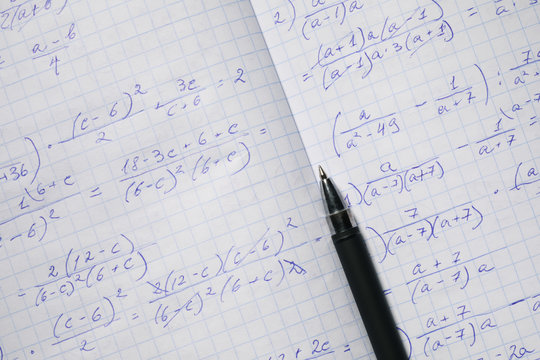 2(a+b)
= \frac{a-b}{4}
+36) \cdot \frac{(c-6)^2}{2} + \frac{3c}{c+6} = 2
\frac{1\6+c}{-6)^2} = \frac{18-3c+6+c}{(6-c)^2(6+c)} =
- \frac{2(12-c)}{(6-c)^2(6+c)}
\frac{(c-6)^2}{2} = \frac{2(12-c)(c-6)^2}{(6-c)^2(6+c)2}
+ 2c
2) \frac{a}{(a-1)a}
= \frac{(a+1)a(a-1)}{(a-1)a \cdot 3(a+1)} =
\left(\frac{a}{a^2-49} - \frac{1}{a+7}\right) : \frac{7}{a^2+
1) \frac{a}{(a-7)(a+7)} - \frac{1\a-7}{a+7} =
) \frac{7}{(a-7)(a+7)} \cdot
= \frac{a+7}{(a-7)a}
) \frac{a+7}{(a-7)a}